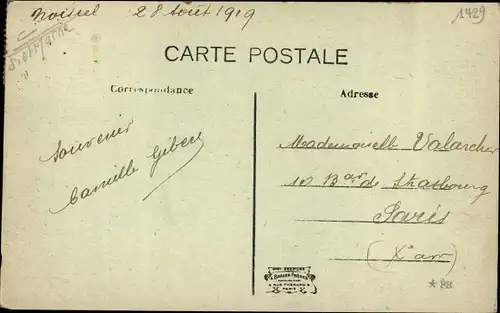 Noisiel 28 Août 1919
1429
CARTE POSTALE
Correspondance
Adresse
Souvenir
Camille Gibert
Mademoiselle Valarcher
10 Bar de Strasbourg
Paris
(Xe arr)
* PB
PARIS